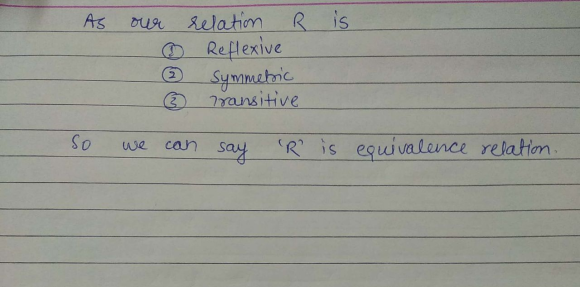 As our relation R is
① Reflexive
② Symmetric
③ Transitive
So we can say 'R' is equivalence relation.